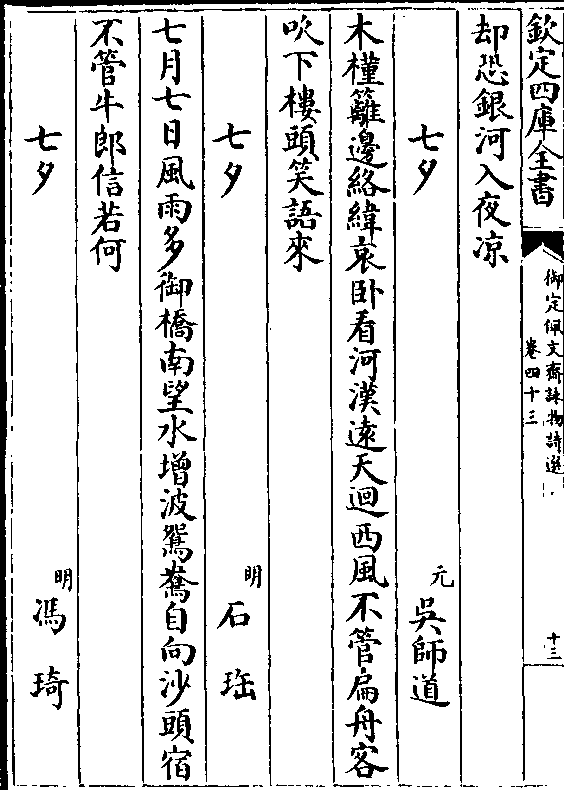 欽定四庫全書
御定佩文齋詠物詩選
卷四十三
十三
却恐銀河入夜凉
七夕
元
吳師道
木槿籬邊絡緯哀卧看河漢遠天迴西風不管扁舟客
吹下樓頭笑語來
七夕
明
石珤
七月七日風雨多御橋南望水增波鴛鴦自向沙頭宿
不管牛郎信若何
七夕
明
馮琦